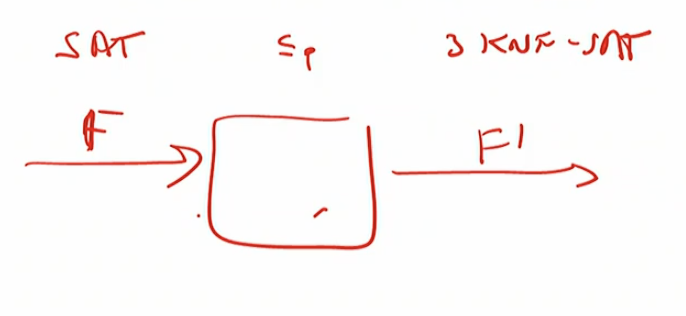 SAT ≤p 3KNF-SAT
F F'